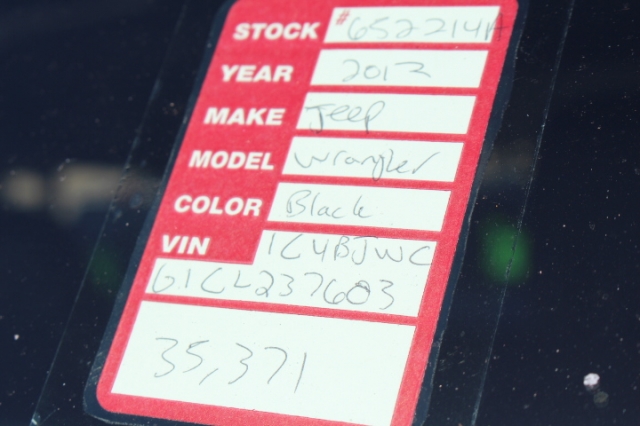 STOCK #652214A
YEAR 2012
MAKE Jeep
MODEL Wrangler
COLOR Black
VIN 1C4BJWC
G1CL237603
35,371